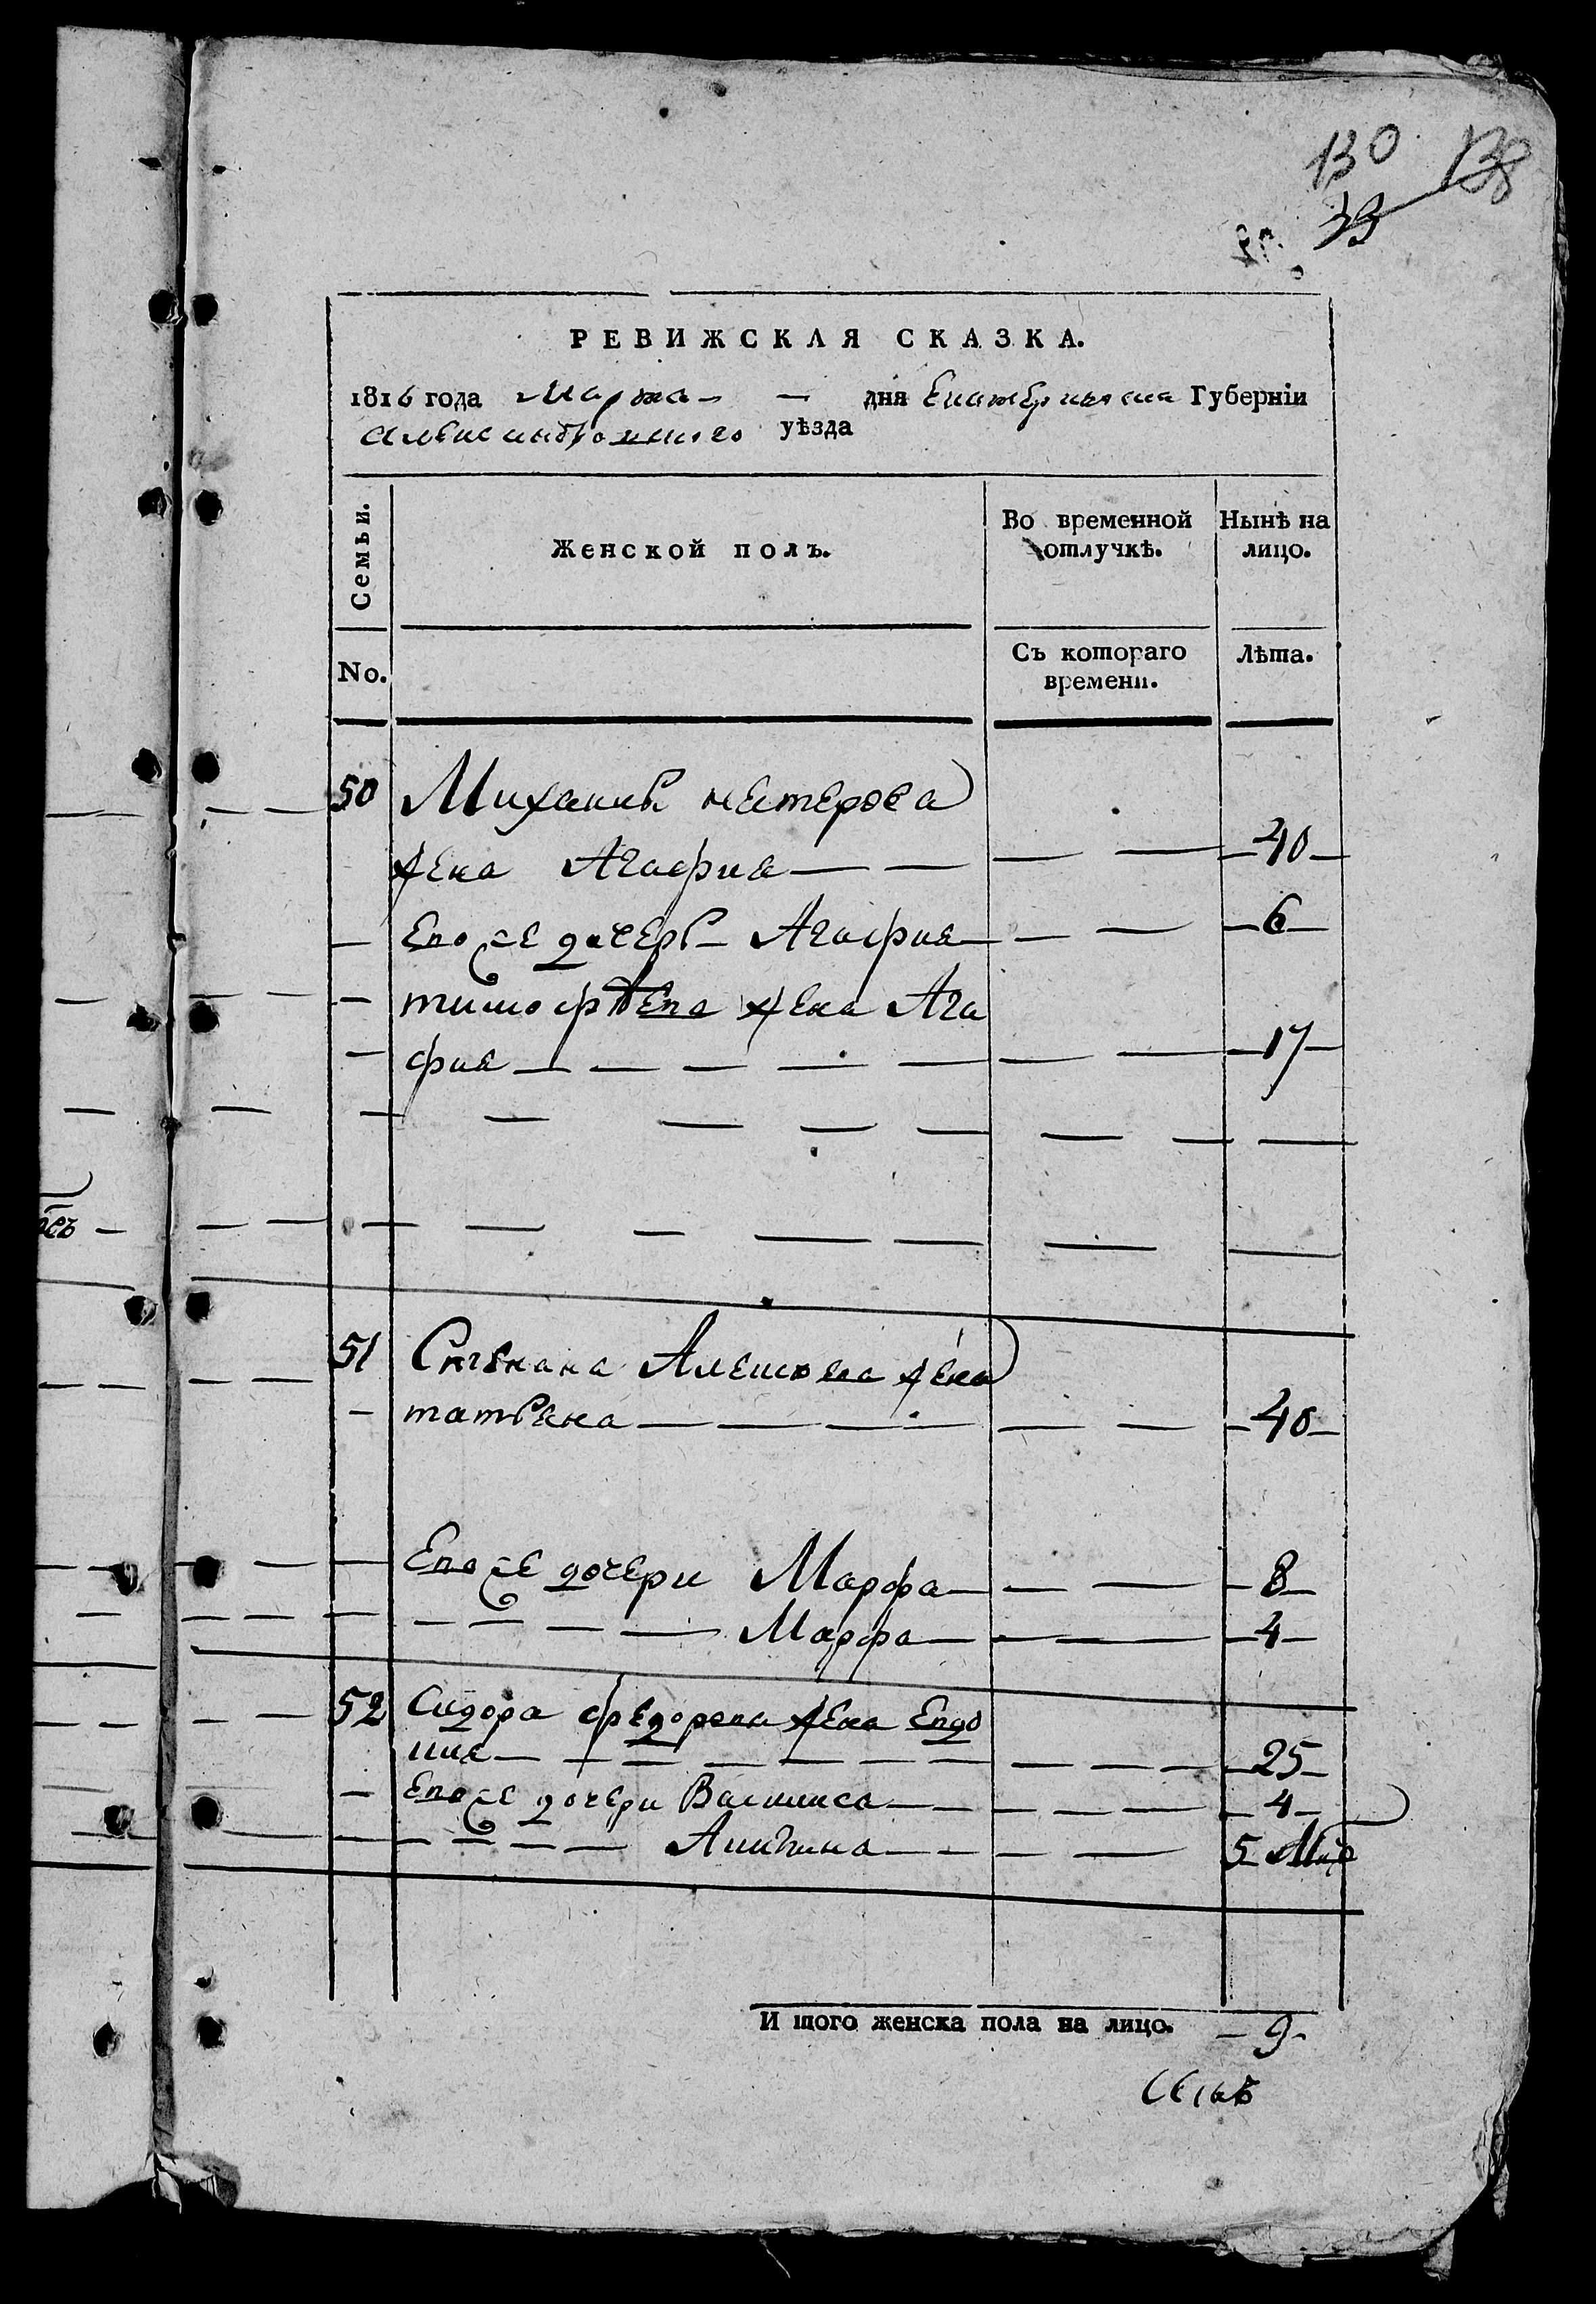 130 138
33
РЕВИЖСКАЯ СКАЗКА.
1816 года Марта — дня Екатериносла Губерніи
Александровского уѣзда
Семьи.
Женской полъ.
Во временной отлучкѣ.
Нынѣ на лицо.
No.
Съ котораго времени.
Лѣта.
50 Михаила нестерова
жена Агафия — — — — 40
— Его же дочерь Агафия — — — 6
— тимофѣева жена Ага
— фия — — — — — — — 17
51 Степана Алексѣева жена
— татьяна — — — — — — 40
— Его же дочери Марфа — — — 8
— — — — — Марфа — — — 4
52 Сидора федорова жена Евдо
кия — — — — — — — — — — 25
— Его же дочери Василиса — — — — — 4
— — — — — Акилина — — — — 5 Мѣс
И того женска пола на лицо. — 9 —